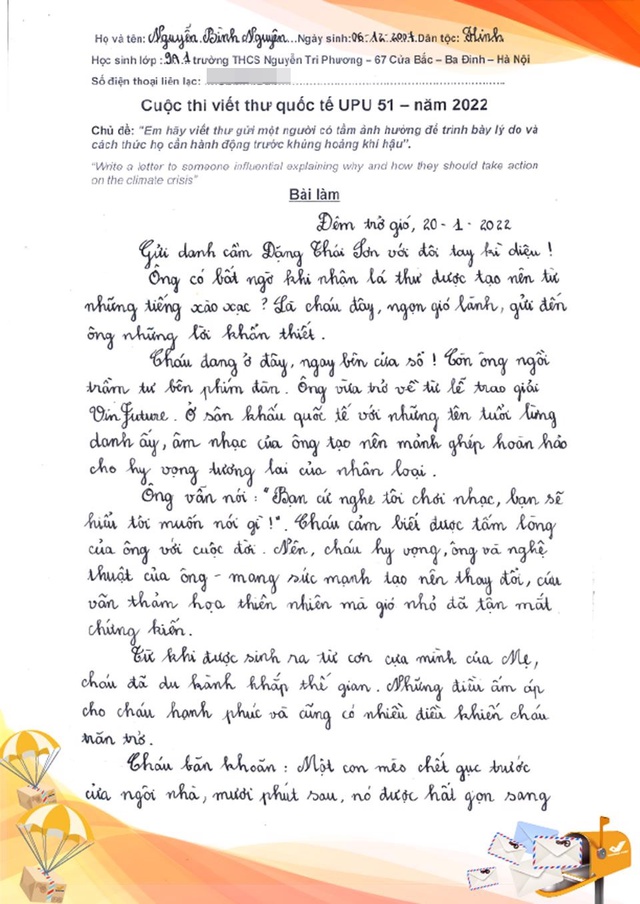 Họ và tên: Nguyễn Bình Nguyên Ngày sinh: 06-12-2007 Dân tộc: Kinh
Học sinh lớp: 9A1 trường THCS Nguyễn Tri Phương – 67 Cửa Bắc – Ba Đình – Hà Nội
Số điện thoại liên lạc:
Cuộc thi viết thư quốc tế UPU 51 – năm 2022
Chủ đề: "Em hãy viết thư gửi một người có tầm ảnh hưởng để trình bày lý do và
cách thức họ cần hành động trước khủng hoảng khí hậu".
"Write a letter to someone influential explaining why and how they should take action
on the climate crisis"
Bài làm
Đêm trở gió, 20-1-2022
Gửi danh cầm Đặng Thái Sơn với đôi tay kì diệu!
Ông có bất ngờ khi nhận lá thư được tạo nên từ
những tiếng xào xạc? Là cháu đây, ngọn gió lành, gửi đến
ông những lời khẩn thiết.
Cháu đang ở đây, ngay bên cửa sổ! Còn ông ngồi
trầm tư bên phím đàn. Ông vừa trở về từ lễ trao giải
VinFuture. Ở sân khấu quốc tế với những tên tuổi lừng
danh ấy, âm nhạc của ông tạo nên mảnh ghép hoàn hảo
cho hy vọng tương lai của nhân loại.
Ông vẫn nói: "Bạn cứ nghe tôi chơi nhạc, bạn sẽ
hiểu tôi muốn nói gì!". Cháu cảm biết được tấm lòng
của ông với cuộc đời. Nên, cháu hy vọng, ông và nghệ
thuật của ông - mang sức mạnh tạo nên thay đổi, cứu
vãn thảm họa thiên nhiên mà gió nhỏ đã tận mắt
chứng kiến.
Từ khi được sinh ra từ cơn cựa mình của Mẹ,
cháu đã du hành khắp thế gian. Những điều ấm áp
cho cháu hạnh phúc và cũng có nhiều điều khiến cháu
trăn trở.
Cháu băn khoăn: Một con mèo chết gục trước
cửa ngôi nhà, mười phút sau, nó được hất gọn sang